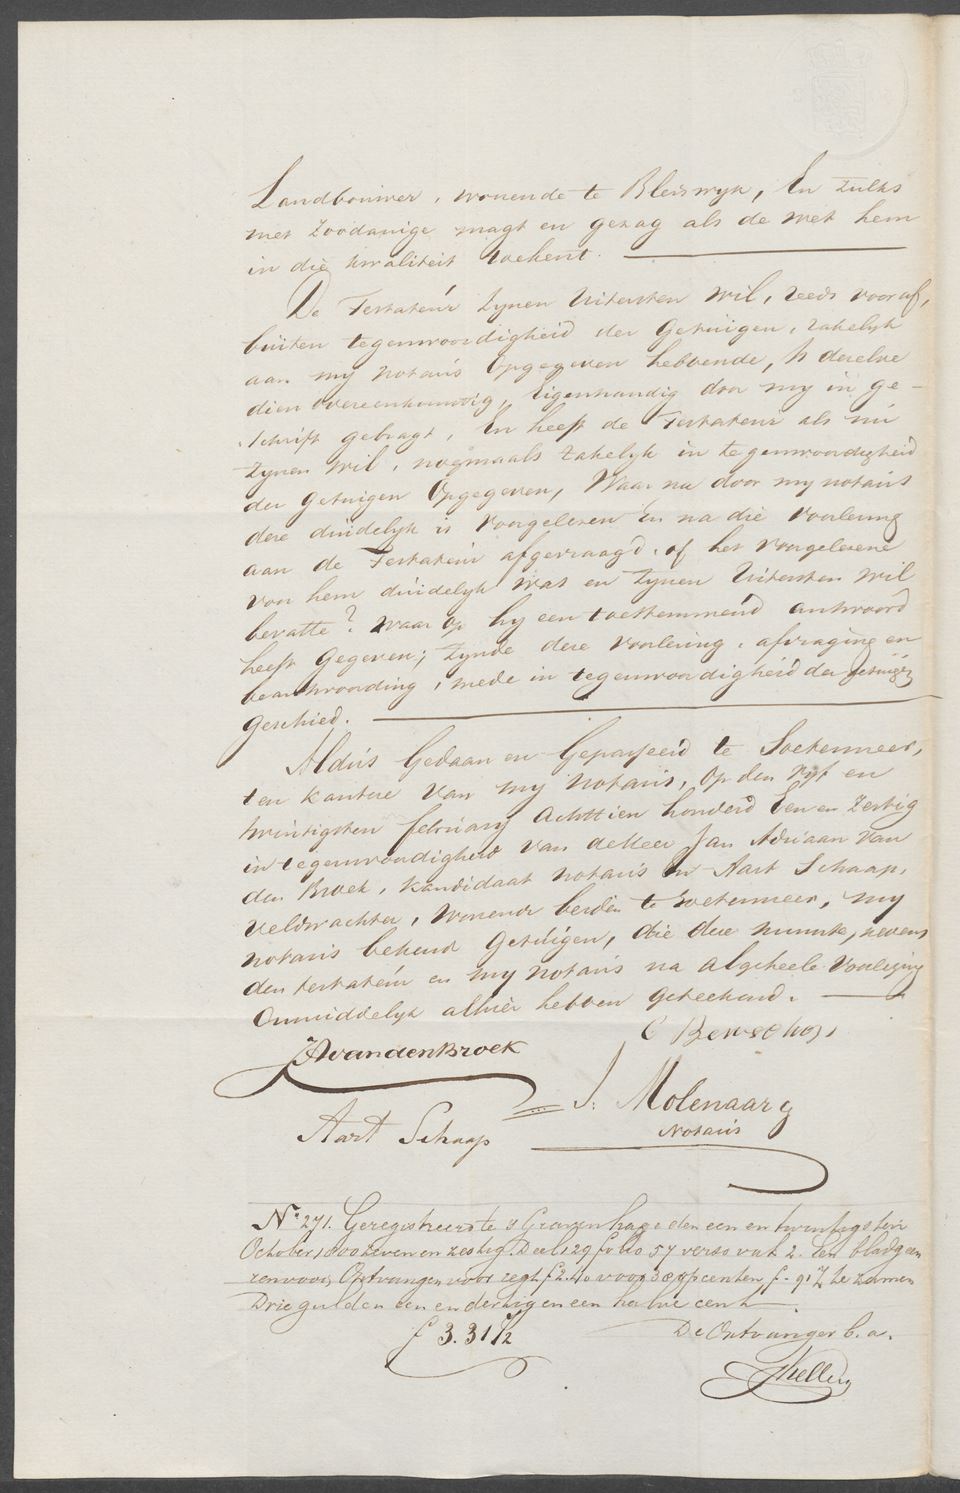 Landbouwer, wonende te Bleiswyk, En zulks
met zoodanige magt en gezag als de wet hem
in die kwaliteit toekent.
De Testateur zynen Uitersten wil, reeds vooraf,
buiten tegenwoordigheid der Getuigen, zakelyk
aan my Notaris Opgegeven hebbende, Is dezelve
dien overeenkomstig, Eigenhandig door my in ge-
schrift gebragt, En heeft de Testateur als nu
zynen wil, nogmaals zakelyk in tegenwoordigheid
der Getuigen Opgegeven, Waar na door my notaris
deze duidelyk is Voorgelezen En na die Voorlezing
aan de Testateur afgevraagd, of het Voorgelezene
voor hem duidelyk was en Zynen Uitersten wil
bevatte? waar op hy een toestemmend antwoord
heeft Gegeven; Zynde deze Voorlezing, afvraging en
beantwoording, mede in tegenwoordigheid der getuigen
Geschied.
Aldus Gedaan en Gepasseerd te Soetermeer,
ten kantore van my Notaris, Op den vyf en
twintigsten february Achttien honderd Een en Zestig
in tegenwoordigheid van de Heer Jan Adriaan Van
den Broek, kandidaat Notaris En Aart Schaap,
veldwachter, Wonende beiden te Soetermeer, my
notaris bekend Getuigen, die deze minute, nevens
den testateur en my Notaris na Algeheele Voorlezing
Onmiddelyk alhier hebben geteekend.
C
JA van den Broek
J. Molenaar
Notaris
Aart Schaap
No. 271. Geregistreerd te 's Gravenhage den een en twintigsten
October 1800 zeven en zestig Deel 129 folio 57 verso vak 2. Een blad geen
renvooi, Ontvangen voor regt f 2.40 voor 38 opcenten f -.91½ te zamen
Drie gulden een en dertig en een halve cent
f 3.31½
De Ontvanger b.a.